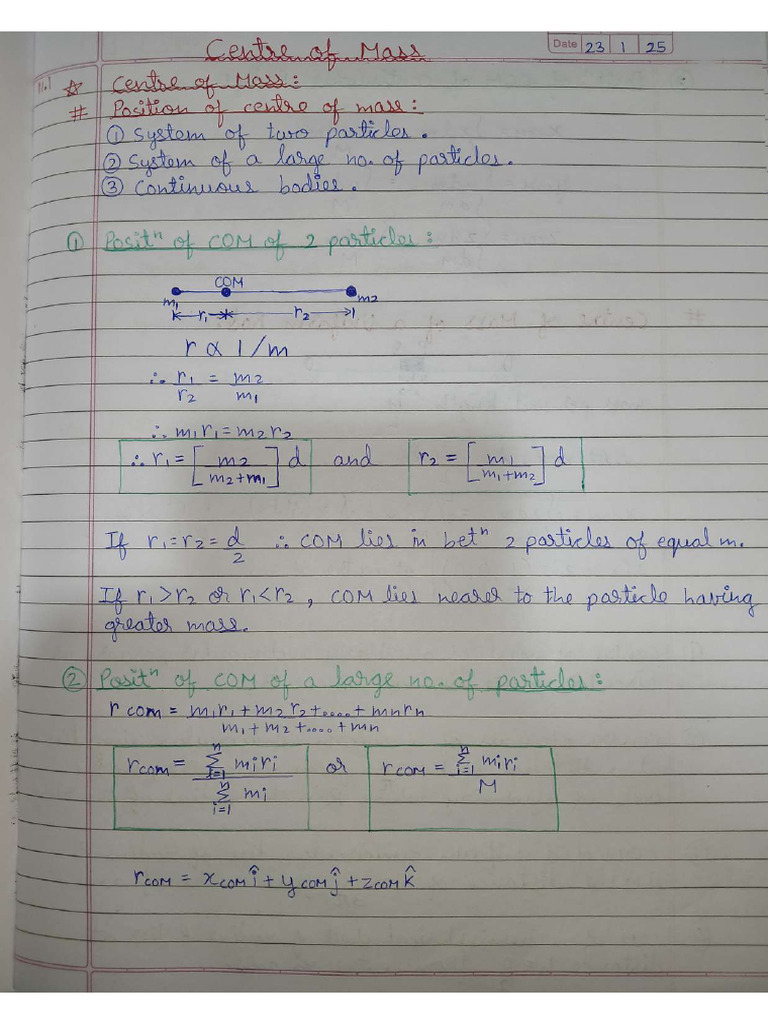 Date 23 1 25
Centre of Mass
11.1 ☆ Centre of Mass:
# Position of centre of mass:
① System of two particles.
② System of a large no. of particles.
③ Continuous bodies.
① Positⁿ of COM of 2 particles:
COM
m₁ m₂
r₁ r₂
r ∝ 1/m
∴ r₁/r₂ = m₂/m₁
∴ m₁r₁ = m₂r₂
∴ r₁ = [m₂/(m₂+m₁)] d and r₂ = [m₁/(m₁+m₂)] d
If r₁=r₂=d/2 ∴ COM lies in betⁿ 2 particles of equal m.
If r₁>r₂ or r₁<r₂, COM lies nearer to the particle having
greater mass.
② Positⁿ of COM of a large no. of particles:
r com = (m₁r₁+m₂r₂+.....+mnrn)/(m₁+m₂+.....+mn)
rcom = (ⁿΣi=1 miri)/(ⁿΣi=1 mi) or rcom = (ⁿΣi=1 miri)/M
rCOM = xCOM î + yCOM ĵ + zCOM k̂